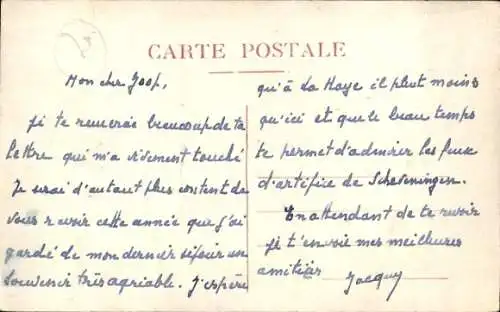 CARTE POSTALE
Mon cher Joop,
je te remercie beaucoup de ta
lettre qui m'a vivement touché
Je serai d'autant plus content de
vous revoir cette année que j'ai
gardé de mon dernier séjour un
souvenir très agréable. J'espère
qu'à La Haye il pleut moins
qu'ici et que le beau temps
te permet d'admirer les feux
d'artifice de Scheveningen.
En attendant de te revoir
je t'envoie mes meilleures
amitiés
Jacquy